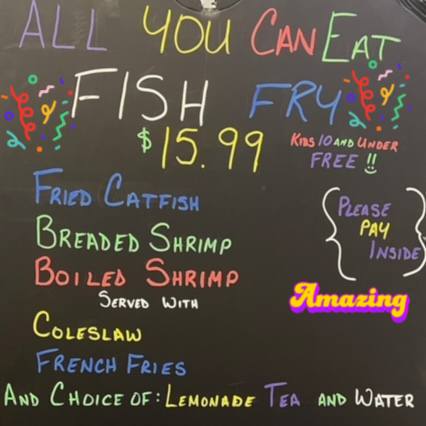 ALL YOU CAN EAT
FISH FRY
$15.99
KIDS 10 AND UNDER
FREE !!
FRIED CATFISH
BREADED SHRIMP
BOILED SHRIMP
SERVED WITH
COLESLAW
FRENCH FRIES
AND CHOICE OF: LEMONADE TEA AND WATER
{PLEASE
PAY
INSIDE}
Amazing